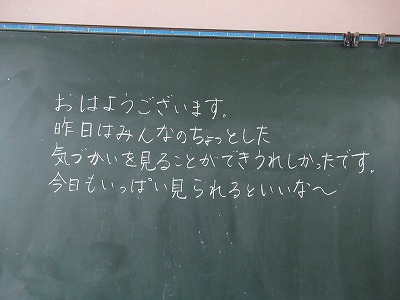 おはようございます。
昨日はみんなのちょっとした
気づかいを見ることができうれしかったです。
今日もいっぱい見られるといいな～